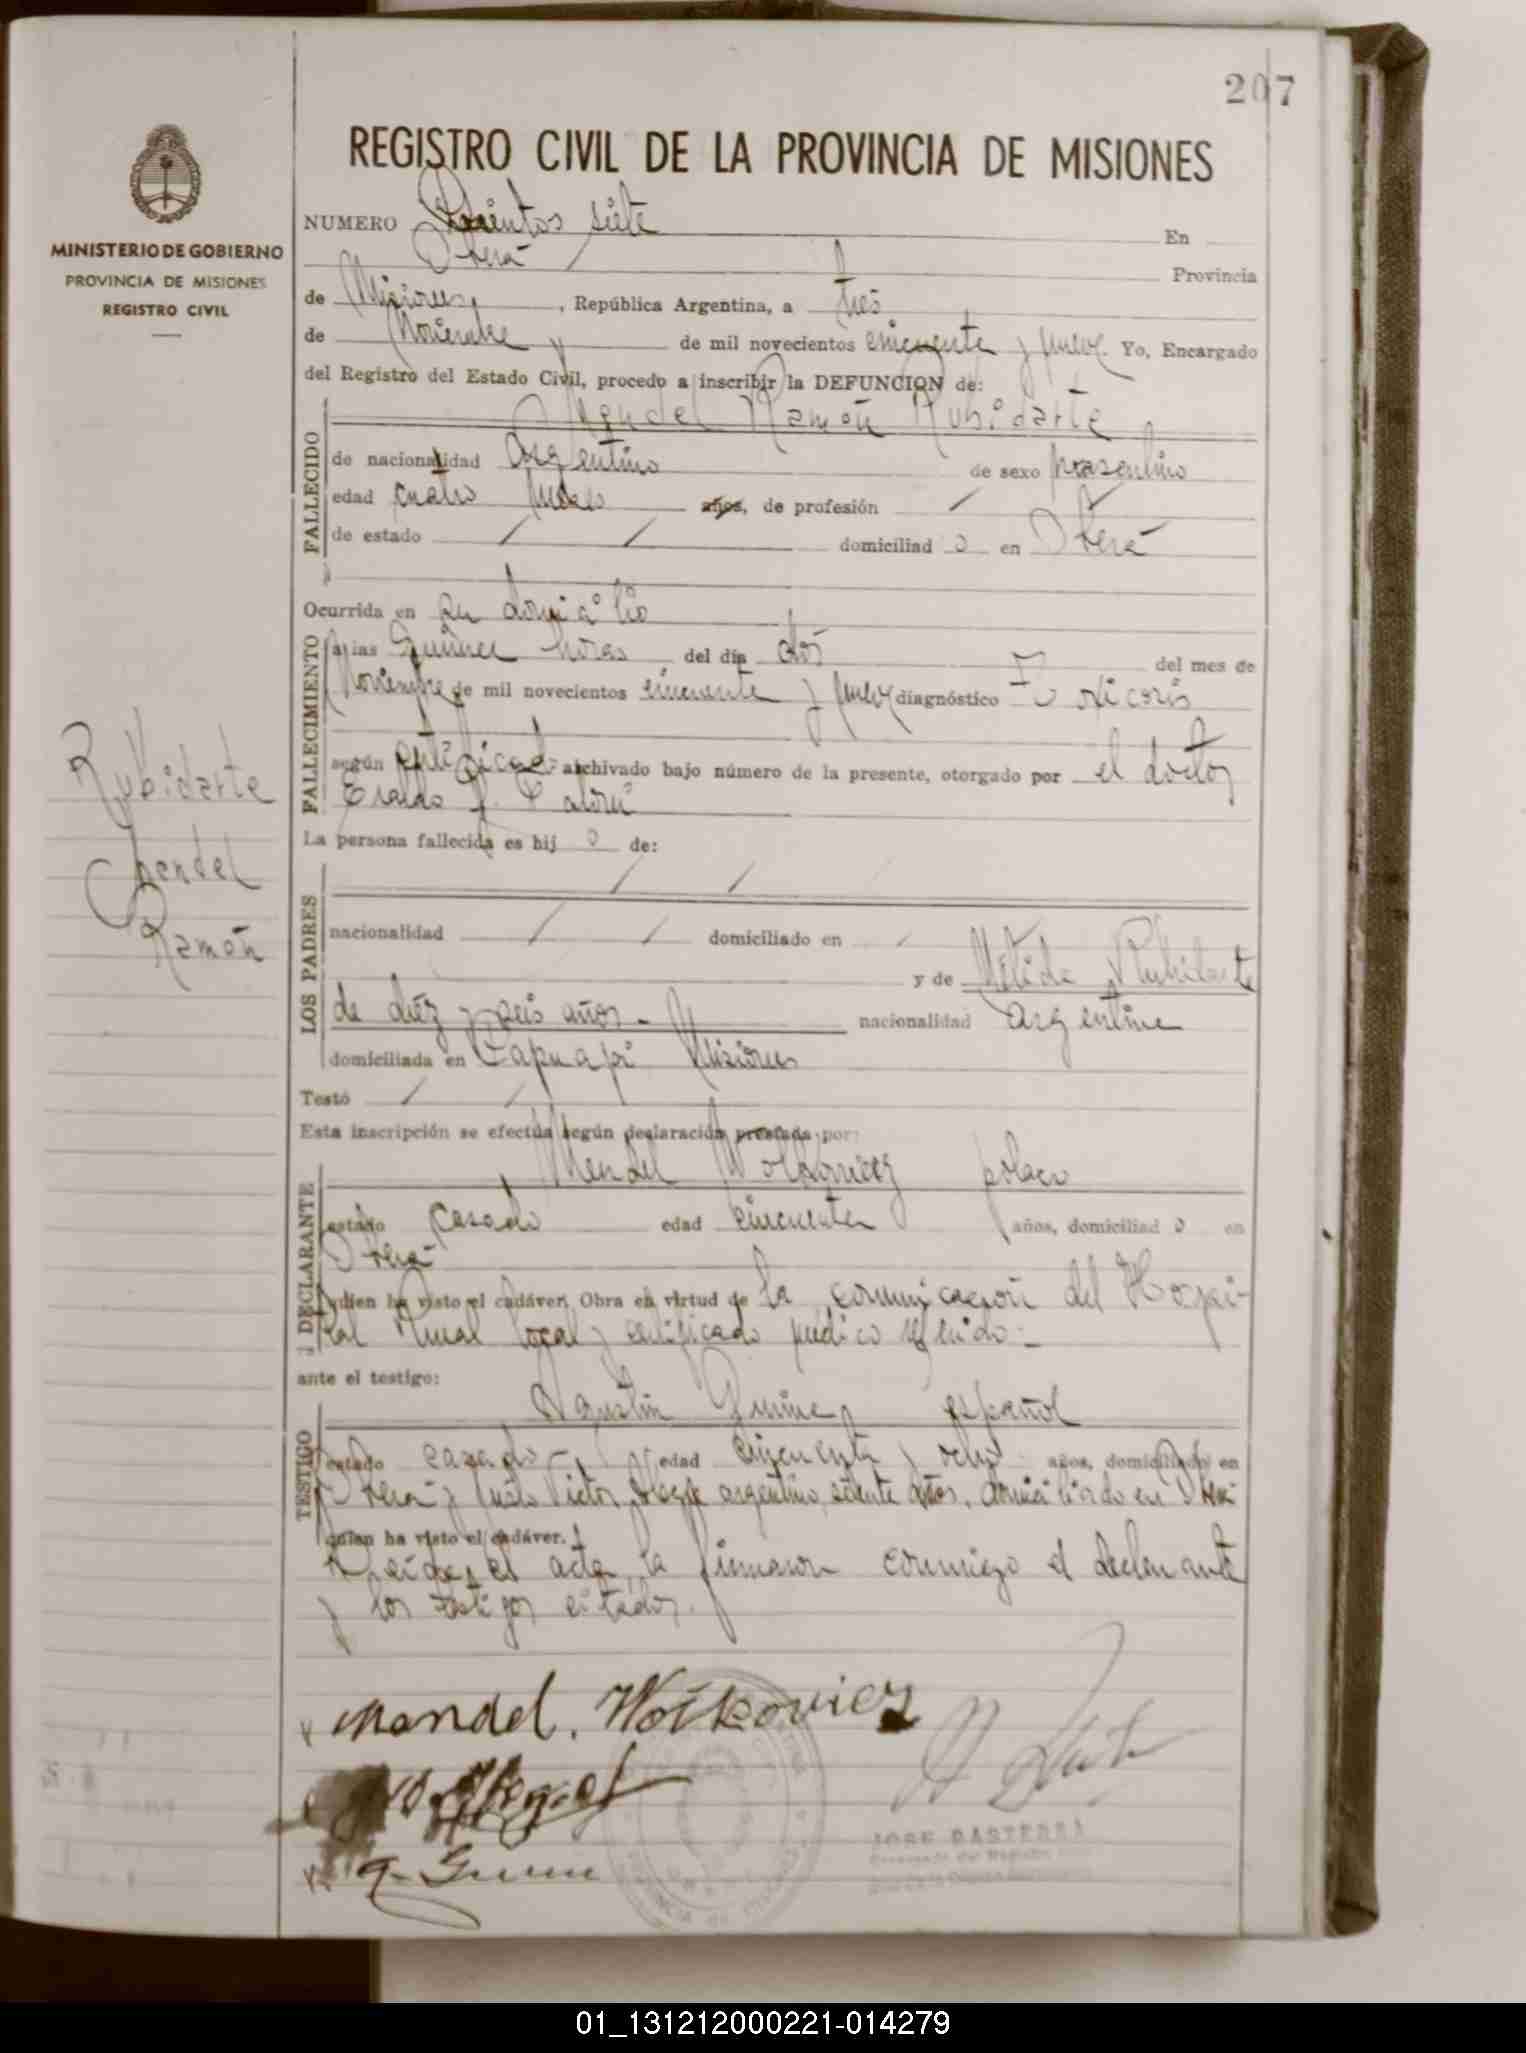 207
REGISTRO CIVIL DE LA PROVINCIA DE MISIONES
MINISTERIO DE GOBIERNO
PROVINCIA DE MISIONES
REGISTRO CIVIL
NUMERO Doscientos siete En
Oberá Provincia
de Misiones, República Argentina, a tres
de Noviembre de mil novecientos cincuenta y nueve. Yo, Encargado
del Registro del Estado Civil, procedo a inscribir la DEFUNCION de:
Ramón Rubidarte
FALLECIDO
de nacionalidad argentino de sexo masculino
edad cuatro meses años, de profesión /
de estado / / domiciliad o en Oberá
Ocurrida en su domicilio
FALLECIMIENTO
a las quince horas del día dos del mes de
Noviembre de mil novecientos cincuenta y nueve diagnóstico Toxicosis
según certificado archivado bajo número de la presente, otorgado por el doctor
La persona fallecida es hij o de:
/ /
LOS PADRES
nacionalidad / / domiciliado en /
y de Rubidarte
de diéz y seis años.- nacionalidad argentina
domiciliada en Capuapi Misiones
Testó / /
Esta inscripción se efectúa según declaración prestada por:
Mendel Wolkowicz polaco
DECLARANTE
estado casado edad cincuenta años, domiciliad o en
Oberá
quien ha visto el cadáver. Obra en virtud de la comunicación del Hospi-
tal Rural local y certificado médico referido.-
ante el testigo:
Agustín español
TESTIGO
estado casado edad cincuenta y ocho años, domiciliado en
Oberá y Justo Victor argentino, setenta años, domiciliado en Oberá
quien ha visto el cadáver.
Leída el acta, la firmaron conmigo el declarante
y los testigos citados.
Rubidarte
Mendel
Ramón
Mendel. Wolkowicz
JOSE BASTERRA
01_131212000221-014279